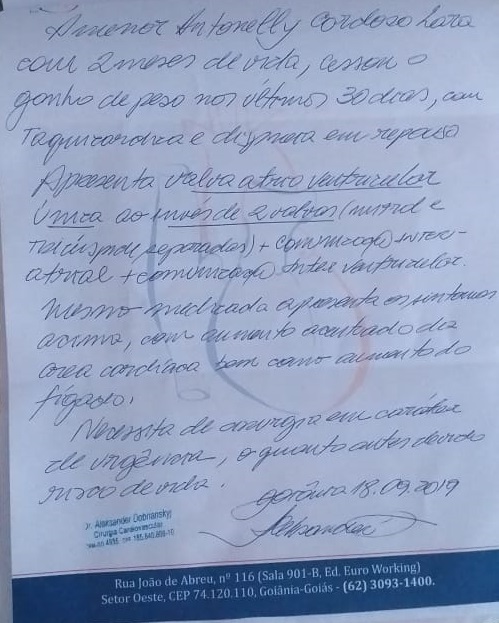 A menor Antonelly Cardoso Lara
com 2 meses de vida, cessou o
ganho de peso nos últimos 30 dias, com
Taquicardia e dispneia em repouso
Apresenta valva atrio ventricular
Única ao invés de 2 valvas (mitral e
tricúspide separadas) + comunicação inter-
atrial + comunicação Inter ventricular.
Mesmo medicada apresenta os sintomas
acima, com aumento acentuado da
área cardíaca bem como aumento do
fígado.
Necessita de cirurgia em caráter
de urgência, o quanto antes devido
risco de vida.
Goiânia 18.09.2019
Dr. Aleksander Dobrianskyj
Cirurgia Cardiovascular
Rua João de Abreu, nº 116 (Sala 901-B, Ed. Euro Working)
Setor Oeste, CEP 74.120.110, Goiânia-Goiás - (62) 3093-1400.